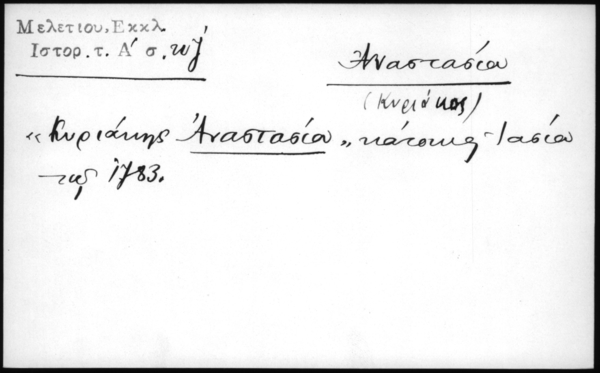 Μελετίου, Εκκλ.
Ιστορ. τ. Α' σ. κζ'
Αναστασία
(Κυριάκος)
« Κυριάκης Ἀναστασία » κάτοικος Ἰασία
τῳ 1783.